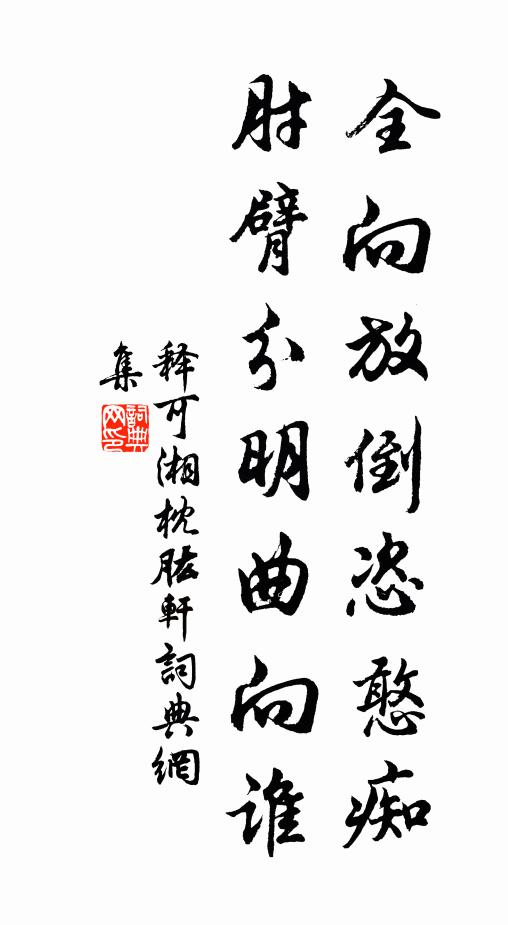 全向放倒恣憨痴
肘臂分明曲向谁
释可湘枕肱軒詞典網
集
詞典网印